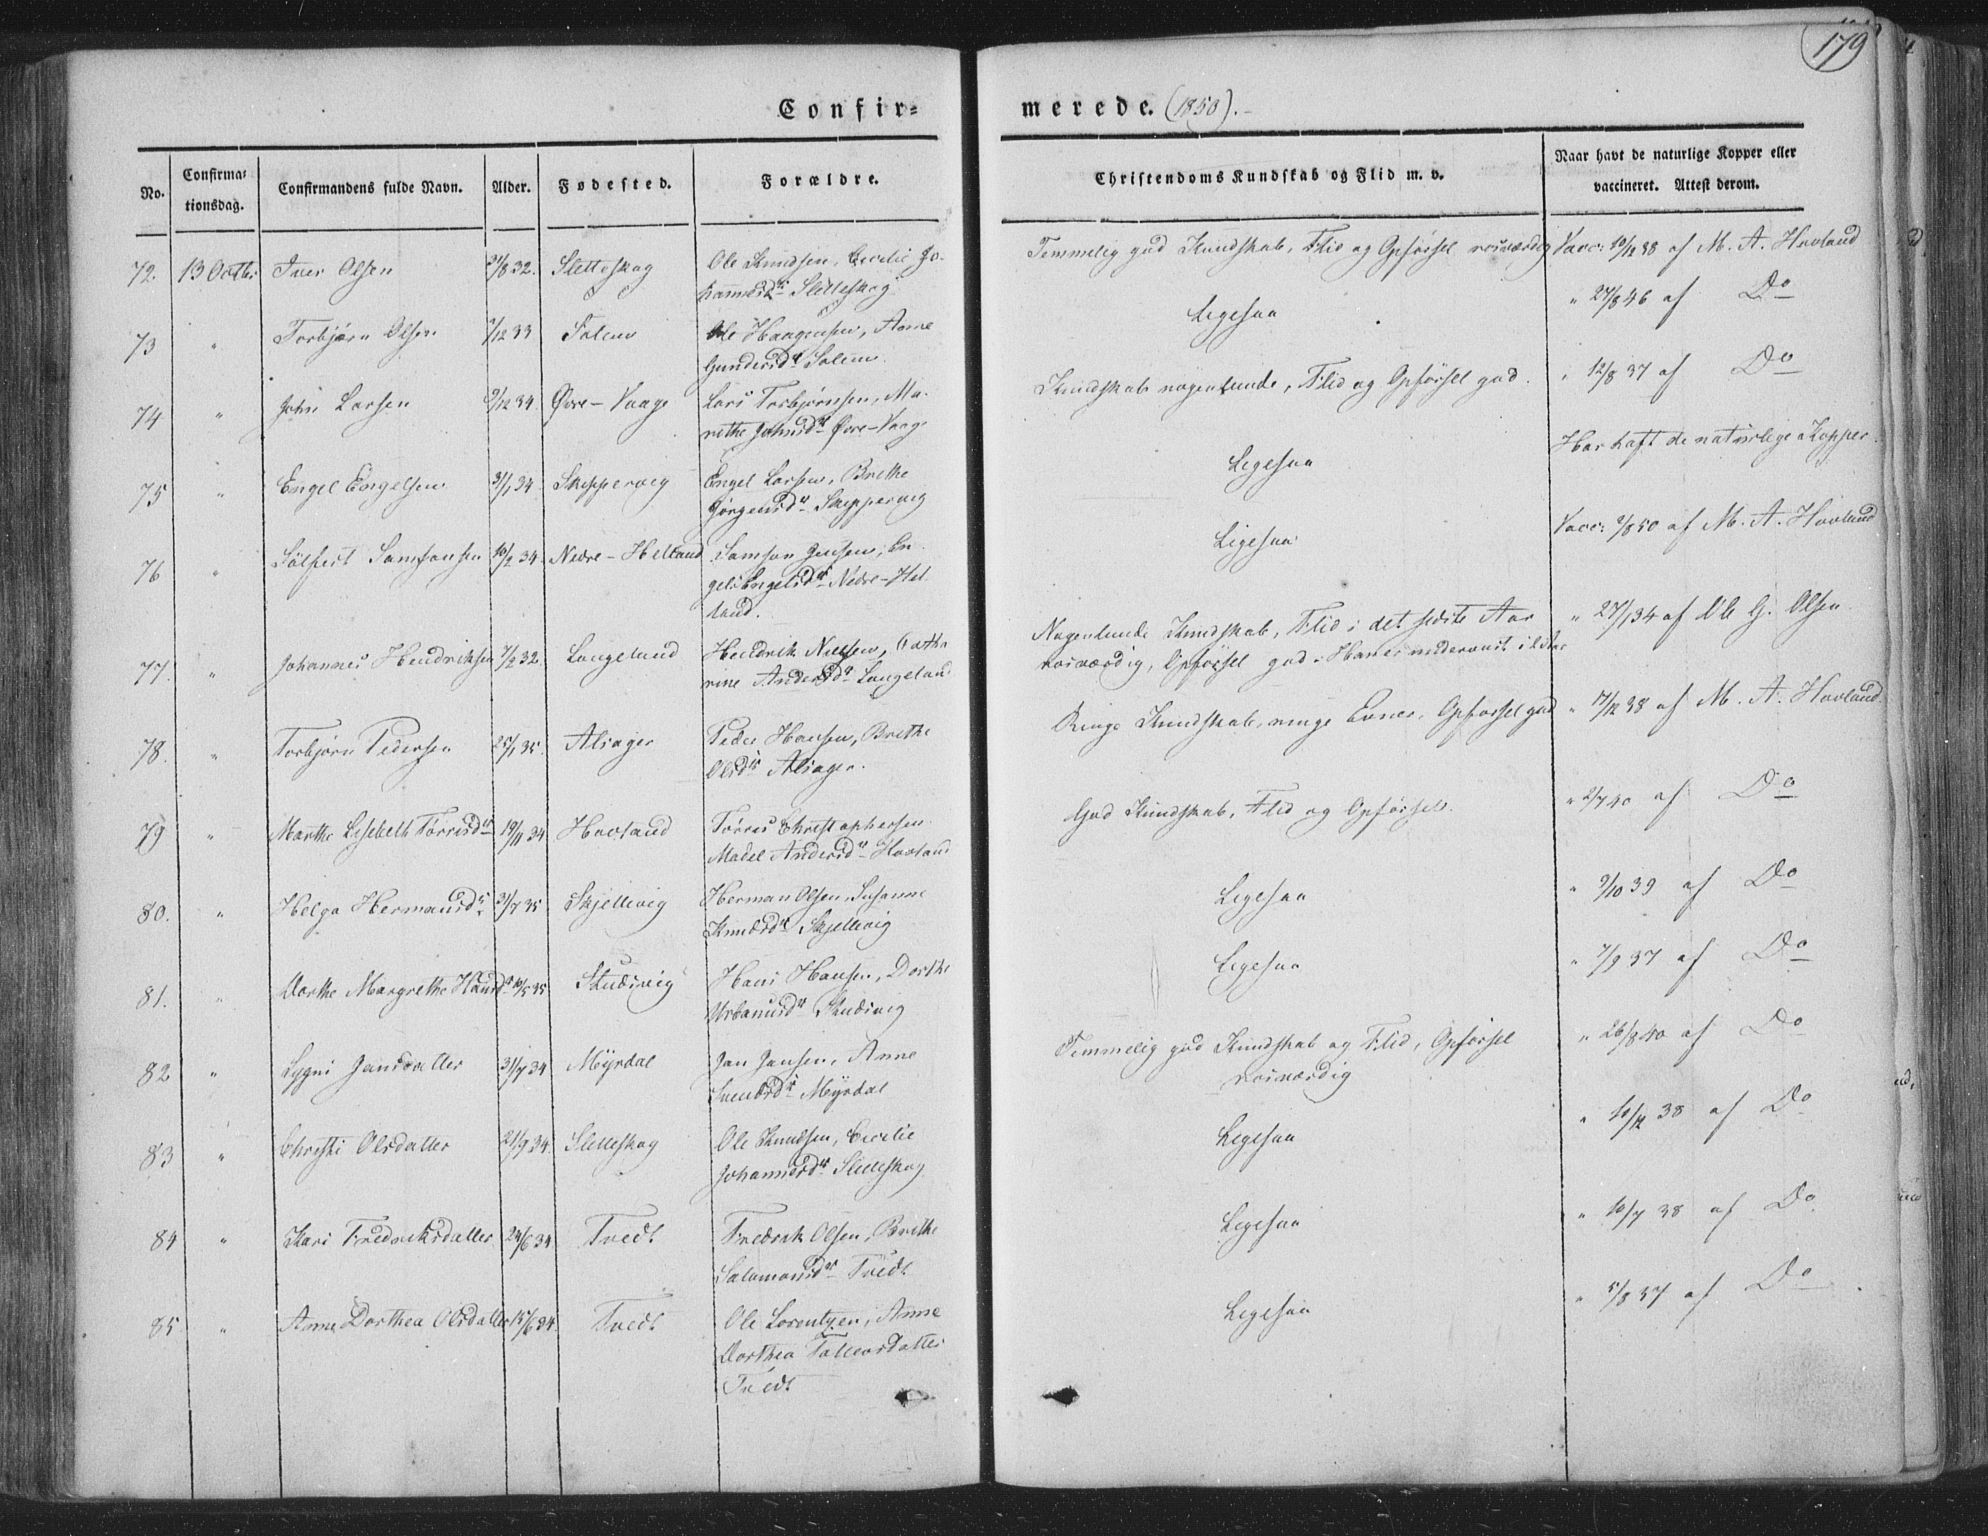 179
Confir=
merede. (1850).-
No.
Confirma=
tionsdag.
Confirmandens fulde Navn.
Alder.
Fødested.
Forældre.
Christendoms Kundskab og Flid m. v.
Naar havt de naturlige Kopper eller
vaccineret. Attest derom.
72. 13 Octbr Iver Olsen 32. Sletteskog Ole Knudsen, Cecilie Jo-
hannesdr Sletteskog
Temmelig god Kundskab, Flid og Opførsel rosværdig Vacc: 10/12 38 af M. A. Hovland
73 " Torbjørn Olsen /12 33 Solem Ole Haagensen, Anne
Gundersdr Solem.
Ligesaa " 27/8 46 af Do
74 " John Larsen 9/12 34. Øvre-Vaage Lars Torbjørnsen, Ma-
rethe Johnsdr Øvre-Vaage
Kundskab nogenlunde, Flid og Opførsel god. " 12/8 37 af Do
75 " Engel Engelsen 31/1 34. Skippervig Engel Larsen, Brethe
Jørgensdr Skippervig
Ligesaa Har haft de naturlige Kopper.
76 " Sølfest Samsonsen 10/2 34. Nedre-Helland Samson Jensen, En-
geli Engelsdr Nedre-Hel-
land.
Ligesaa Vacc: 9/8 50 af M. A. Hovland
77. " Johannes Hendriksen 7/2 32. Langeland Hendrik Nielsen, Catha-
rine Andersdr Langeland
Nogenlunde Kundskab, Flid i det sidste Aar
rosværdig, Opførsel god. Han er undervist i
" 27/1 34 af Ole G. Olsen.
78. " Torbjørn Pedersen 25/1 35. Alsager Peder Hansen, Brethe
Olsdr Alsager.
Ringe Kundskab, ringe Evner, Opførsel god " 17/12 38 af M. A. Hovland
79 " Marthe Lisebeth Tørrisdr 19/11 34 Hovland Tørres Christophersen
Madel Andersdr Hovland
God Kundskab, Flid og Opførsel. " 2/7 40 af Do
80. " Helga Hermansdr 31/7 35 Skjellivig Herman Olsen, Susanne
Knudsdr Skjellivig
Ligesaa " 9/10 39 af Do
81. " Dorthe Margrethe Hansdr 10/5 35 Studsvig Hans Hansen, Dorthe
Urbanusdr Studsvig
Ligesaa " 7/9 37 af Do
82 " Lygni Jansdatter 31/7 34 Myrdal Jan Jansen, Anne
Svendsdr Myrdal
Temmelig god Kundskab og Flid, Opførsel
rosværdig
" 26/8 40 af Do
83 " Christi Olsdatter 21/9 34. Sletteskog Ole Knudsen, Cecilie
Johannesdr Sletteskog
Ligesaa " 10/12 38 af Do
84 " Kari Fredriksdatter 24/6 34 Tvedt Fredrik Olsen, Brethe
Salamonsdr Tvedt
Ligesaa " 10/7 38 af Do
85 " Anne Dorthea Olsdatter 15/6 34 Tvedt Ole Lorentzen, Anne
Dorthea Tollevsdatter
Tvedt
Ligesaa " 5/8 37 af Do